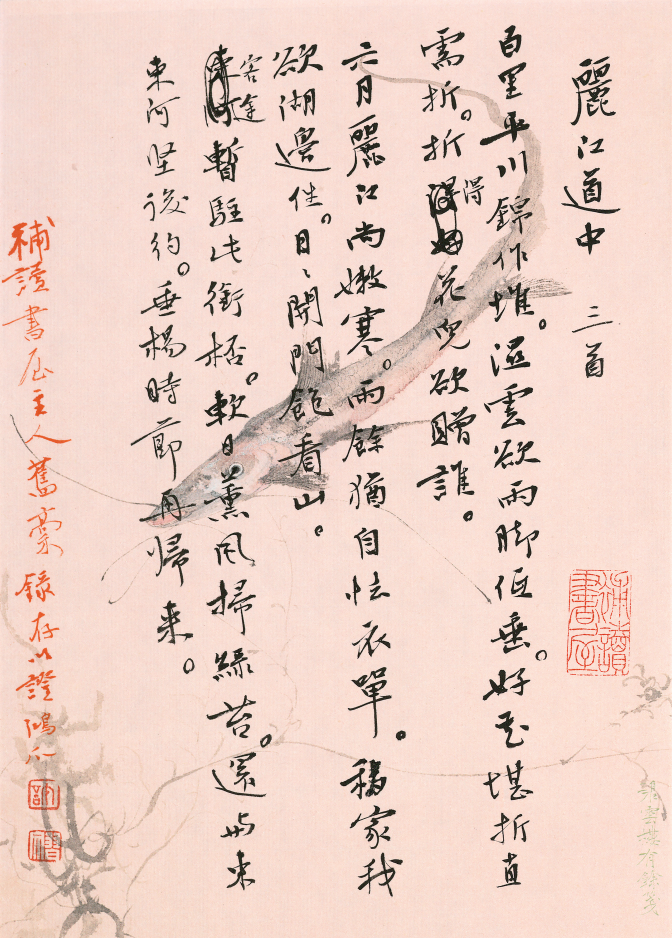 麗江道中 三首
百里平川錦作堆。濕雲欲雨腳低垂。好花堪折直
需折。折得花兒欲贈誰。
六月麗江尚嫩寒。雨餘猶自怯衣單。移家我
欲湖邊住。日日開門飽看山。
客途暫駐此銜桮。軟日薰風掃綠苔。還與東
東河堅後約。垂楊時節再歸來。
補讀書屋主人舊稾錄存以證鴻爪
補讀書屋